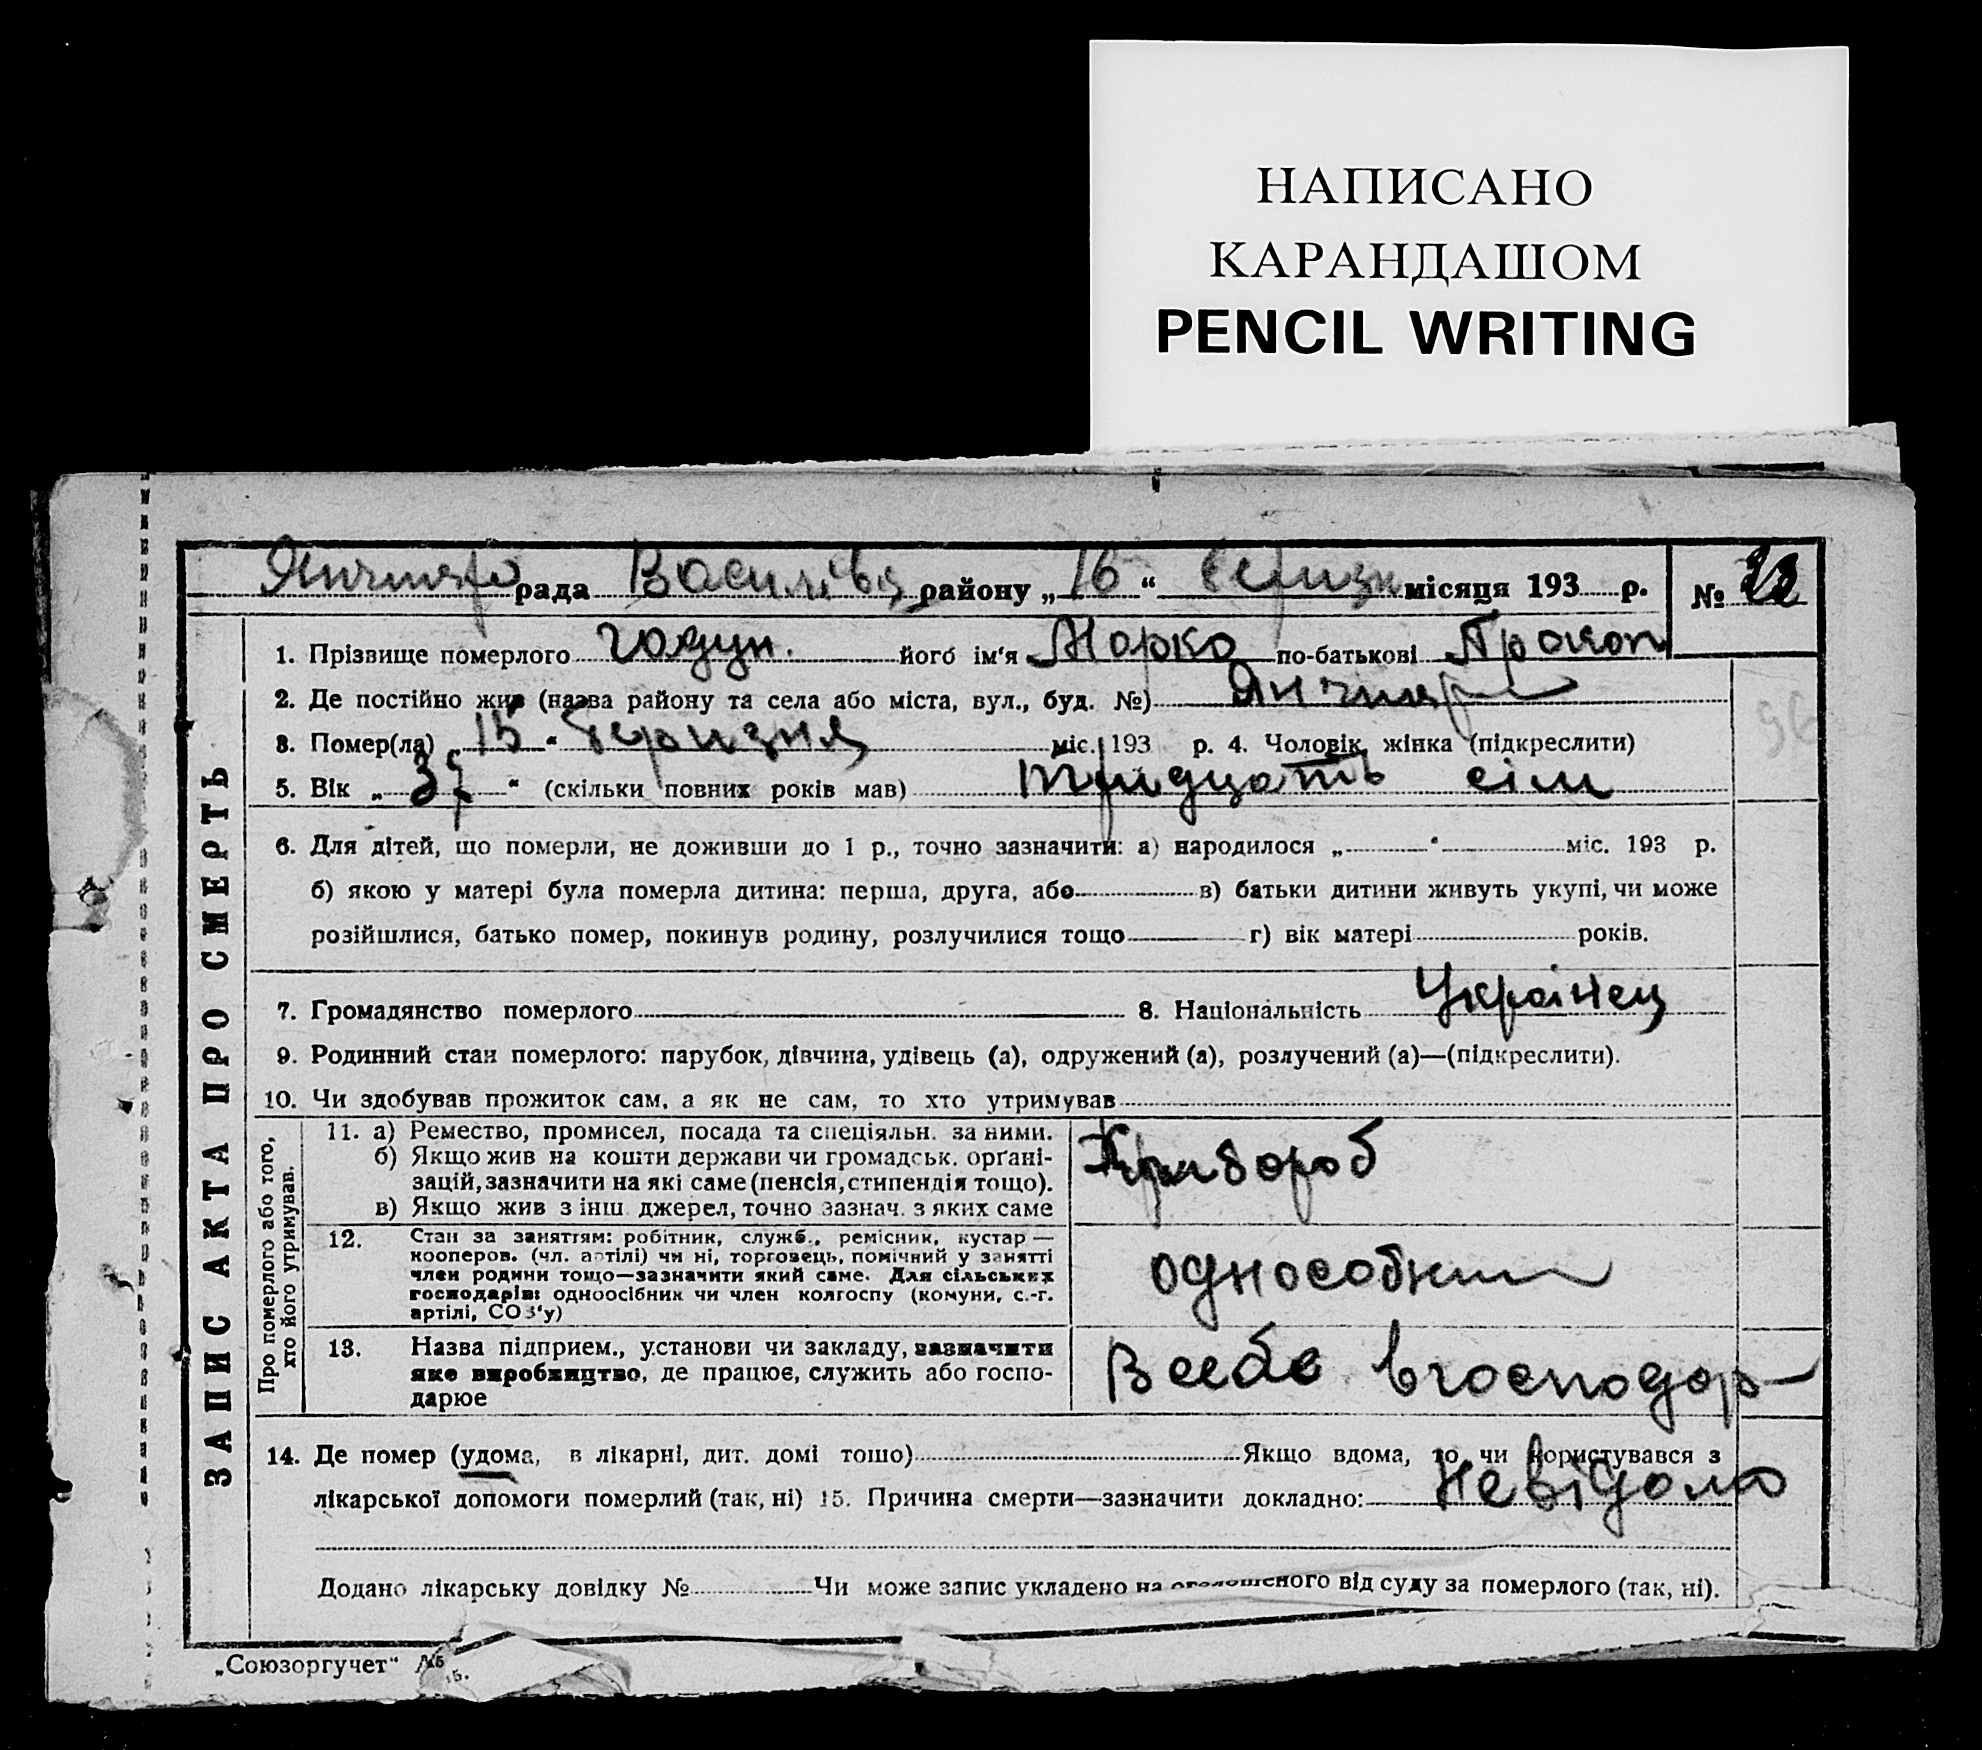 НАПИСАНО
КАРАНДАШОМ
PENCIL WRITING
рада Василівц району „ 16 “ березн місяця 193 р. №
ЗАПИС АКТА ПРО СМЕРТЬ
1. Прізвище померлого Годун. його ім'я Марко по-батькові Прокоп
2. Де постійно жив (назва району та села або міста, вул., буд. №) Янчикр
3. Помер(ла) „ 15 “ березня міс. 193 р. 4. Чоловік, жінка (підкреслити)
5. Вік „ 37 “ (скільки повних років мав) тридцать сім
6. Для дітей, що померли, не доживши до 1 р., точно зазначити: а) народилося „ “ міс. 193 р.
б) якою у матері була померла дитина: перша, друга, або в) батьки дитини живуть укупі, чи може
розійшлися, батько помер, покинув родину, розлучилися тощо г) вік матері років.
7. Громадянство померлого 8. Національність Українец
9. Родинний стан померлого: парубок, дівчина, удівець (а), одружений (а), розлучений (а)—(підкреслити).
10. Чи здобував прожиток сам, а як не сам, то хто утримував
Про померлого або того, хто його утримував.
11. а) Ремество, промисел, посада та спеціяльн. за ними.
б) Якщо жив на кошти держави чи громадськ. орґані-
зацій, зазначити на які саме (пенсія, стипендія тощо).
в) Якщо жив з інш джерел, точно зазнач. з яких саме
Хрибороб
12. Стан за заняттям: робітник, служб., ремісник, кустар —
кооперов. (чл. артілі) чи ні, торговець, помічний у занятті
член родини тощо—зазначити який саме. Для сільських
господарів: одноосібник чи член колгоспу (комуни, с.-г.
артілі, СОЗ'у)
однособник
13. Назва підприєм., установи чи закладу, зазначити
яке виробництво, де працює, служить або госпо-
дарює
Всебе вгосподар
14. Де помер (удома, в лікарні, дит. домі тощо) Якщо вдома, то чи користувався з
лікарської допомоги померлий (так, ні) 15. Причина смерти—зазначити докладно: Невідомо
Додано лікарську довідку № Чи може запис укладено на оголошеного від суду за померлого (так, ні).
„Союзоргучет“